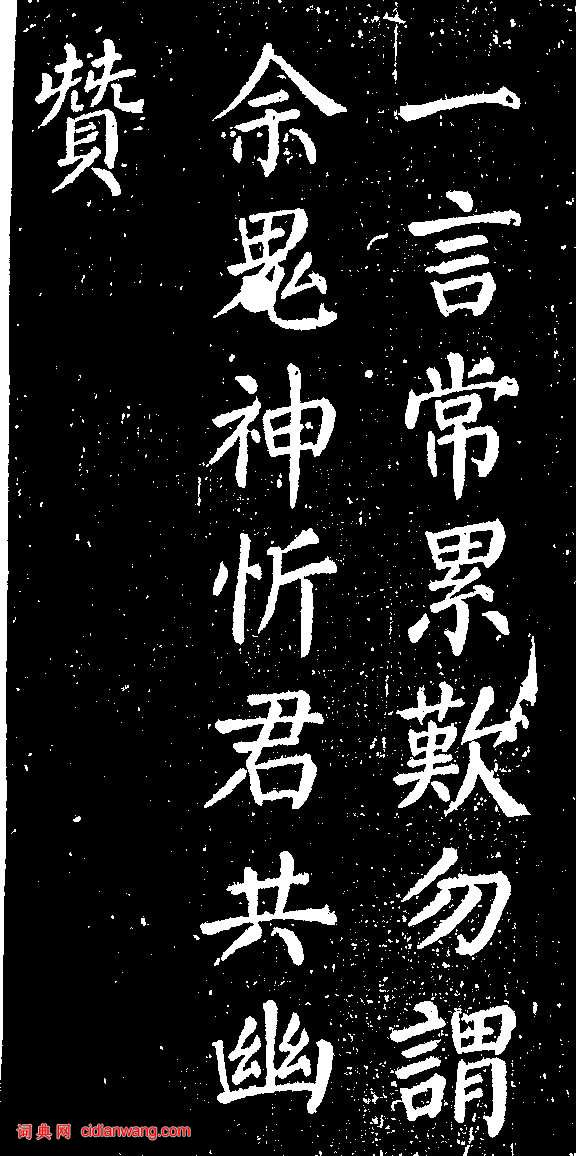 一言常累歎勿謂
余鬼神忻君共幽
贊
词典网 cidianwang.com